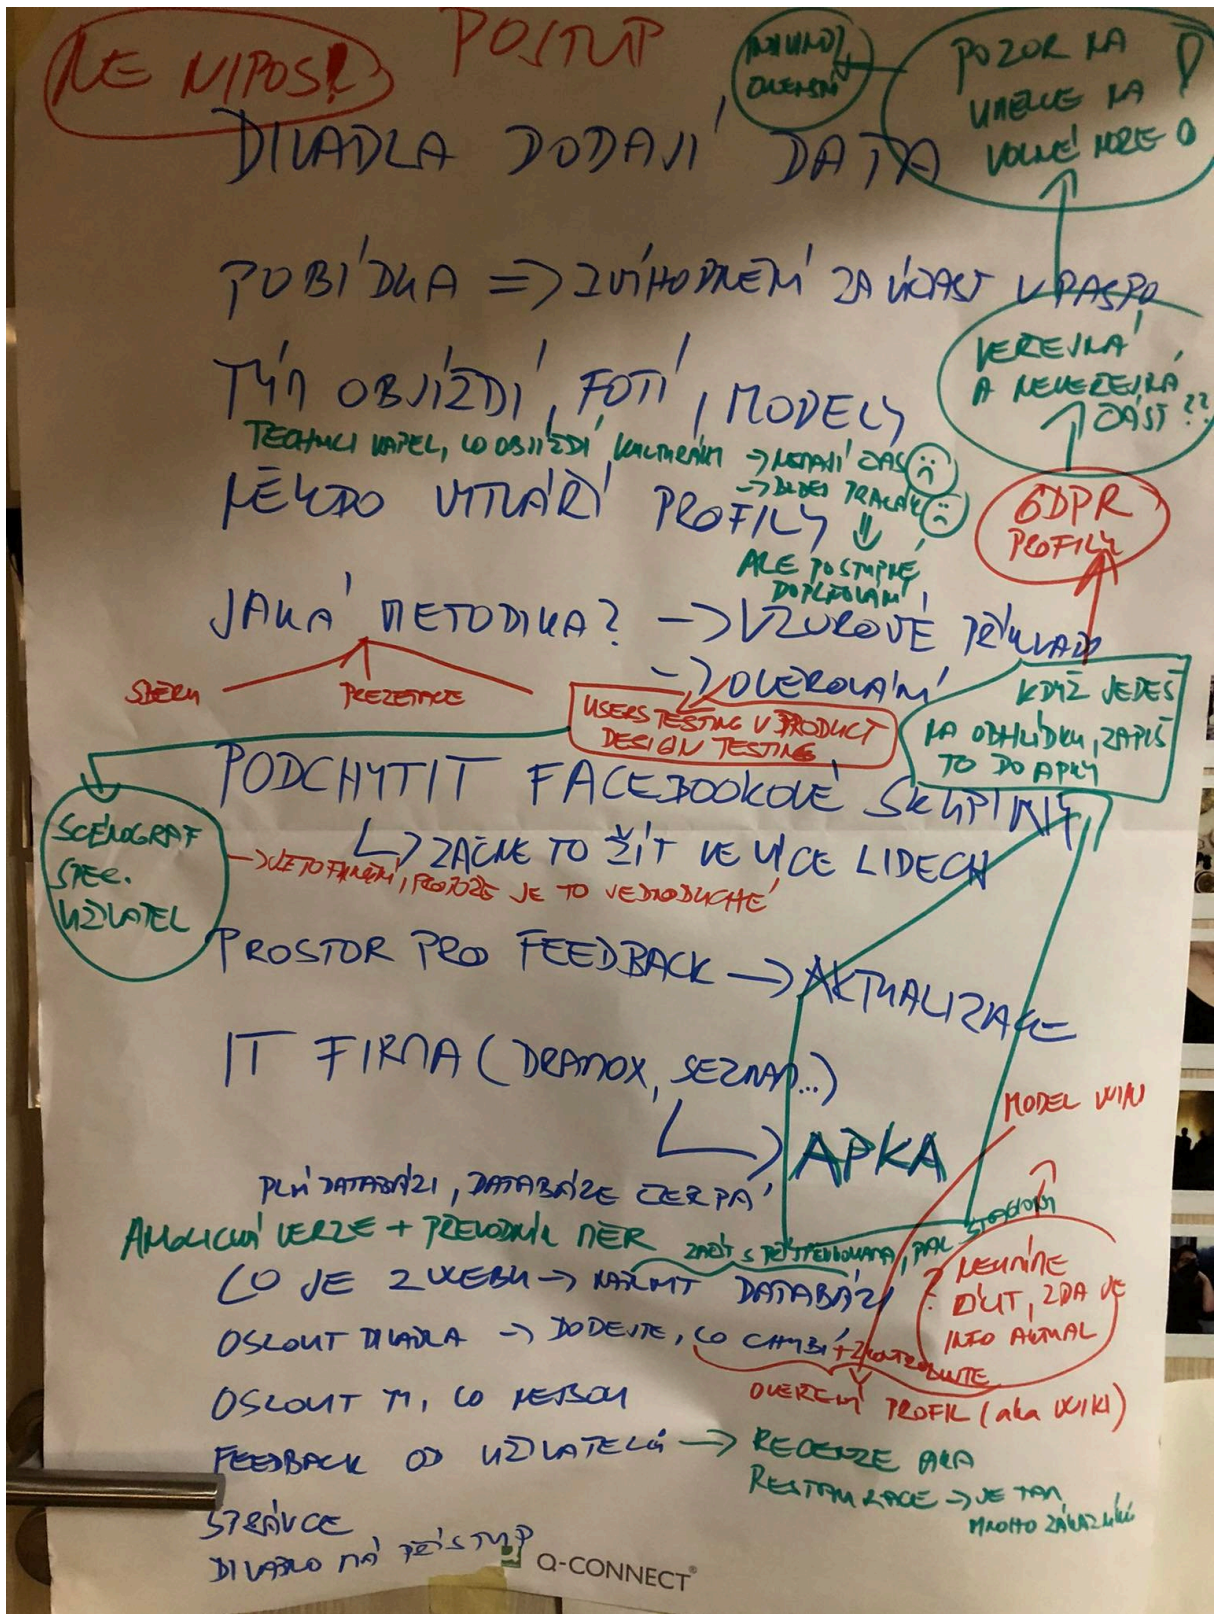 NE NIPOS!
POSTUP
POZOR NA
UMĚLCE NA
VOLNÉ NOZE !
DIVADLA DODAJÍ DATA
POBÍDKA => ZVÍHODNĚNÍ ZA ÚČAST V PASPO
VEŘEJNÁ
A NEVEŘEJNÁ
ČÁST??
TÝM OBJÍŽDÍ, FOTÍ, MODELY
TECHNICI KAPEL, CO OBJÍŽDÍ KULTURÁKY → NEMAJÍ ČAS
NĚKDO VYTVÁŘÍ PROFILY
GDPR
PROFILY
ALE POSTUPNÉ
DOPLŇOVÁNÍ
JAKÁ METODIKA? → VZOROVÉ PŘÍKLADY
→ OVĚŘOVÁNÍ
SBĚRU
PREZENTACE
USERS TESTING V PRODUCT
DESIGN TESTING
KDYŽ JEDEŠ
NA OBHLÍDKU, ZAPIŠ
TO DO APKY
PODCHYTIT FACEBOOKOVÉ SKUPINY
ZAČNE TO ŽÍT VE VÍCE LIDECH
SCÉNOGRAF
SPEC.
UŽIVATEL
PROTOŽE JE TO JEDNODUCHÉ
PROSTOR PRO FEEDBACK → AKTUALIZACE
IT FIRMA (DRAMOX, SEZNAM...)
MODEL WIN
→ APKA
PLNÍ DATABÁZI, DATABÁZE ČERPÁ
ANGLICKÁ VERZE + PŘEVODNÍK MĚR
ZAČÍT S PŘÍSPĚVKOVKAMA, PAK STAGIONY
CO JE Z WEBU → NAKRMIT DATABÁZI
NEUMÍME
ŘÍCT, ZDA JE
INFO AKTUAL
OSLOVIT DIVADLA → DODEJTE, CO CHYBÍ + ZKONTROLUJTE
OVĚŘENÝ PROFIL (aka WIKI)
OSLOVIT TY, CO NEJSOU
FEEDBACK OD UŽIVATELŮ → RECENZE AKA
RESTAURACE → JE TAM
MNOHO ZÁKAZNÍKŮ
SPRÁVCE
DIVADLO MÁ PŘÍSTUP
Q-CONNECT®